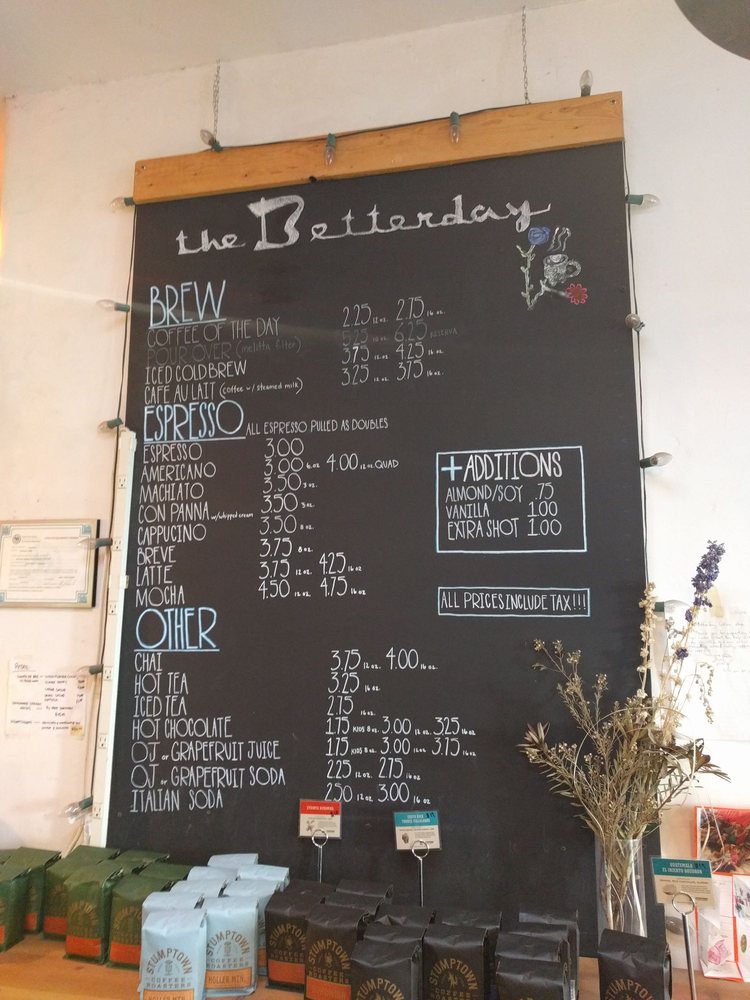 the Betterday
BREW
COFFEE OF THE DAY 2.25 12 oz. 2.75 16 oz.
POUR OVER (melitta filter) 5.25 12 oz. 6.25 RESERVA
ICED COLD BREW 3.75 12 oz. 4.25 16 oz.
CAFE AU LAIT (coffee w/ steamed milk) 3.25 12 oz. 3.75 16 oz.
ESPRESSO ALL ESPRESSO PULLED AS DOUBLES
ESPRESSO 3.00
AMERICANO 3.00 6 oz. 4.00 12 oz. QUAD
MACHIATO 3.50 3 oz.
CON PANNA w/whipped cream 3.50 3 oz.
CAPPUCINO 3.50 8 oz.
BREVE 3.75 8 oz.
LATTE 3.75 12 oz. 4.25 16 oz
MOCHA 4.50 12 oz. 4.75 16 oz.
+ADDITIONS
ALMOND/SOY .75
VANILLA 1.00
EXTRA SHOT 1.00
ALL PRICES INCLUDE TAX!!!
OTHER
CHAI 3.75 12 oz. 4.00 16 oz.
HOT TEA 3.25 16 oz
ICED TEA 2.75 16 oz.
HOT CHOCOLATE 1.75 KIDS 8 oz. 3.00 12 oz. 3.25 16 oz.
OJ or GRAPEFRUIT JUICE 1.75 KIDS 8 oz. 3.00 12 oz. 3.75 16 oz.
OJ or GRAPEFRUIT SODA 2.25 12 oz. 2.75 16 oz
ITALIAN SODA 2.50 12 oz. 3.00 16 oz.
COSTA RICA
GUATEMALA
EL INJERTO BOURBON
STUMPTOWN
COFFEE ROASTERS
HOLLER MTN.
STUMPTOWN
COFFEE ROASTERS
HOLLER MTN.
STUMPTOWN
STUMPTOWN
STUMPTOWN
STUMPTOWN